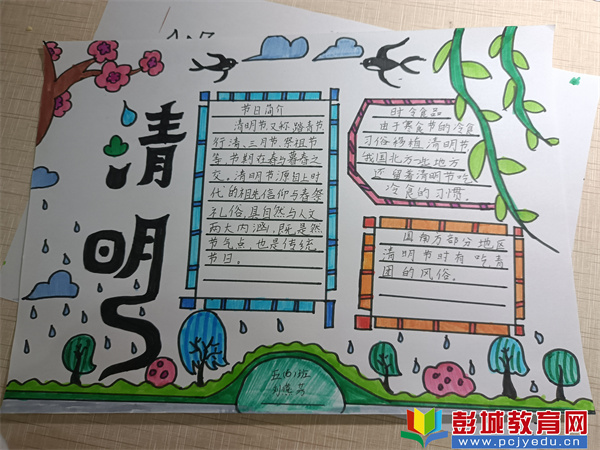 清明
节日简介
清明节又称踏青节
行清、三月节、祭祖节
等，节期在春与暮春之
交。清明节源自上时
代的祖先信仰与春祭
礼俗，具自然与人文
两大内涵，既是然
节气点，也是传统
节日。
时令食品
由于寒食节的冷食
习俗移植清明节
我国北方一些地方
还留着清明节吃
冷食的习惯。
国南方部分地区
清明节时有吃青
团的风俗。
五(6)班
彭城教育网
www.pcjyedu.cn